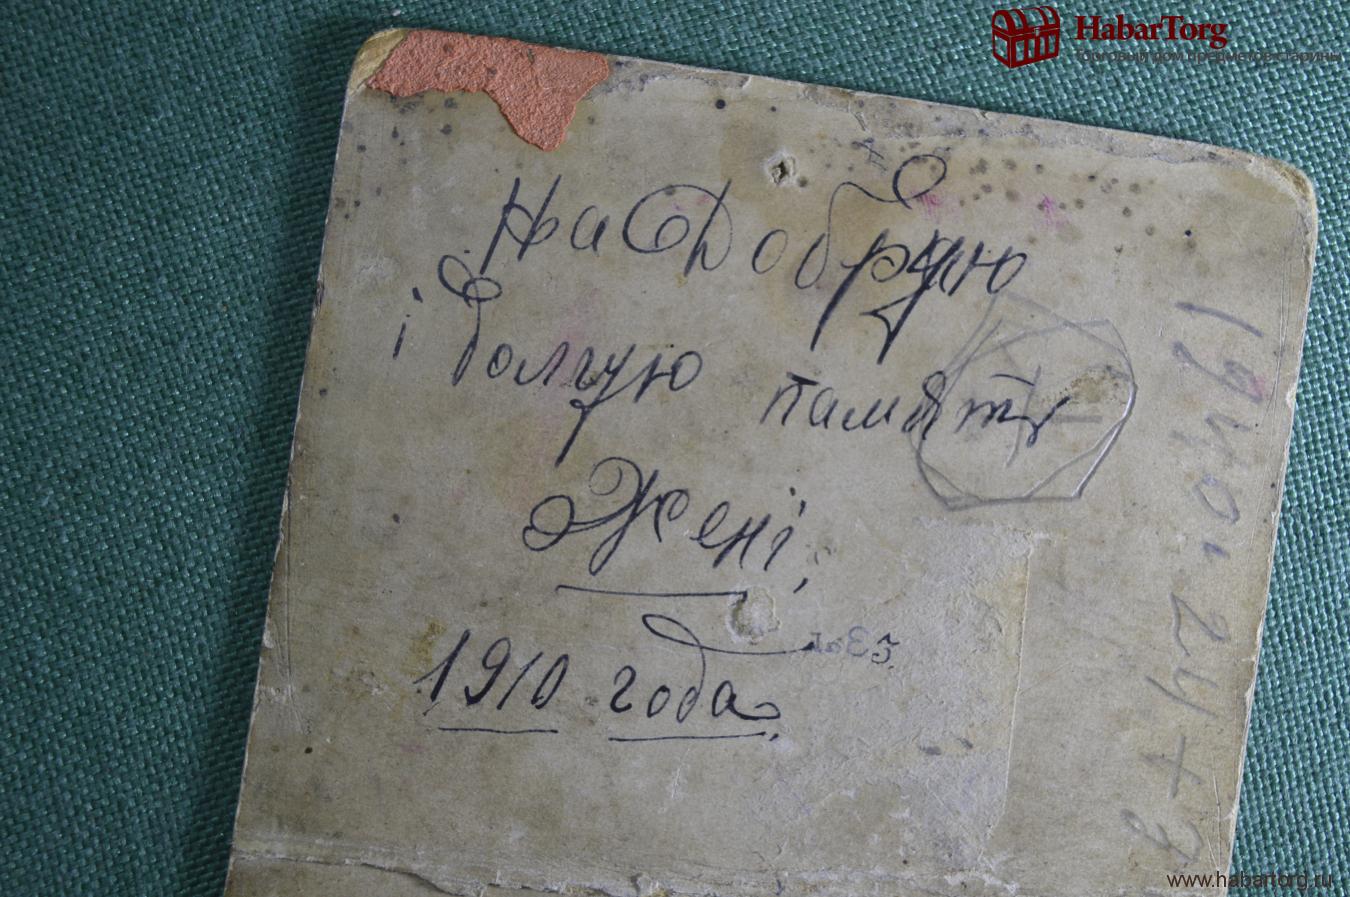 HabarTorg
Торговый дом предметов старины
На Добрую
і долгую память
Жені,
1910 года.
www.habartorg.ru